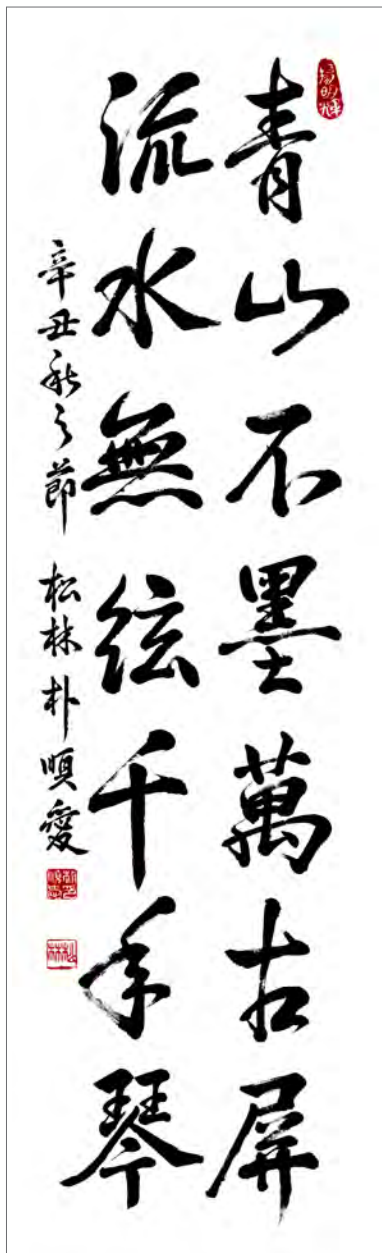 青山不墨萬古屏
流水無絃千年琴
辛丑秋之節 松林 朴順愛